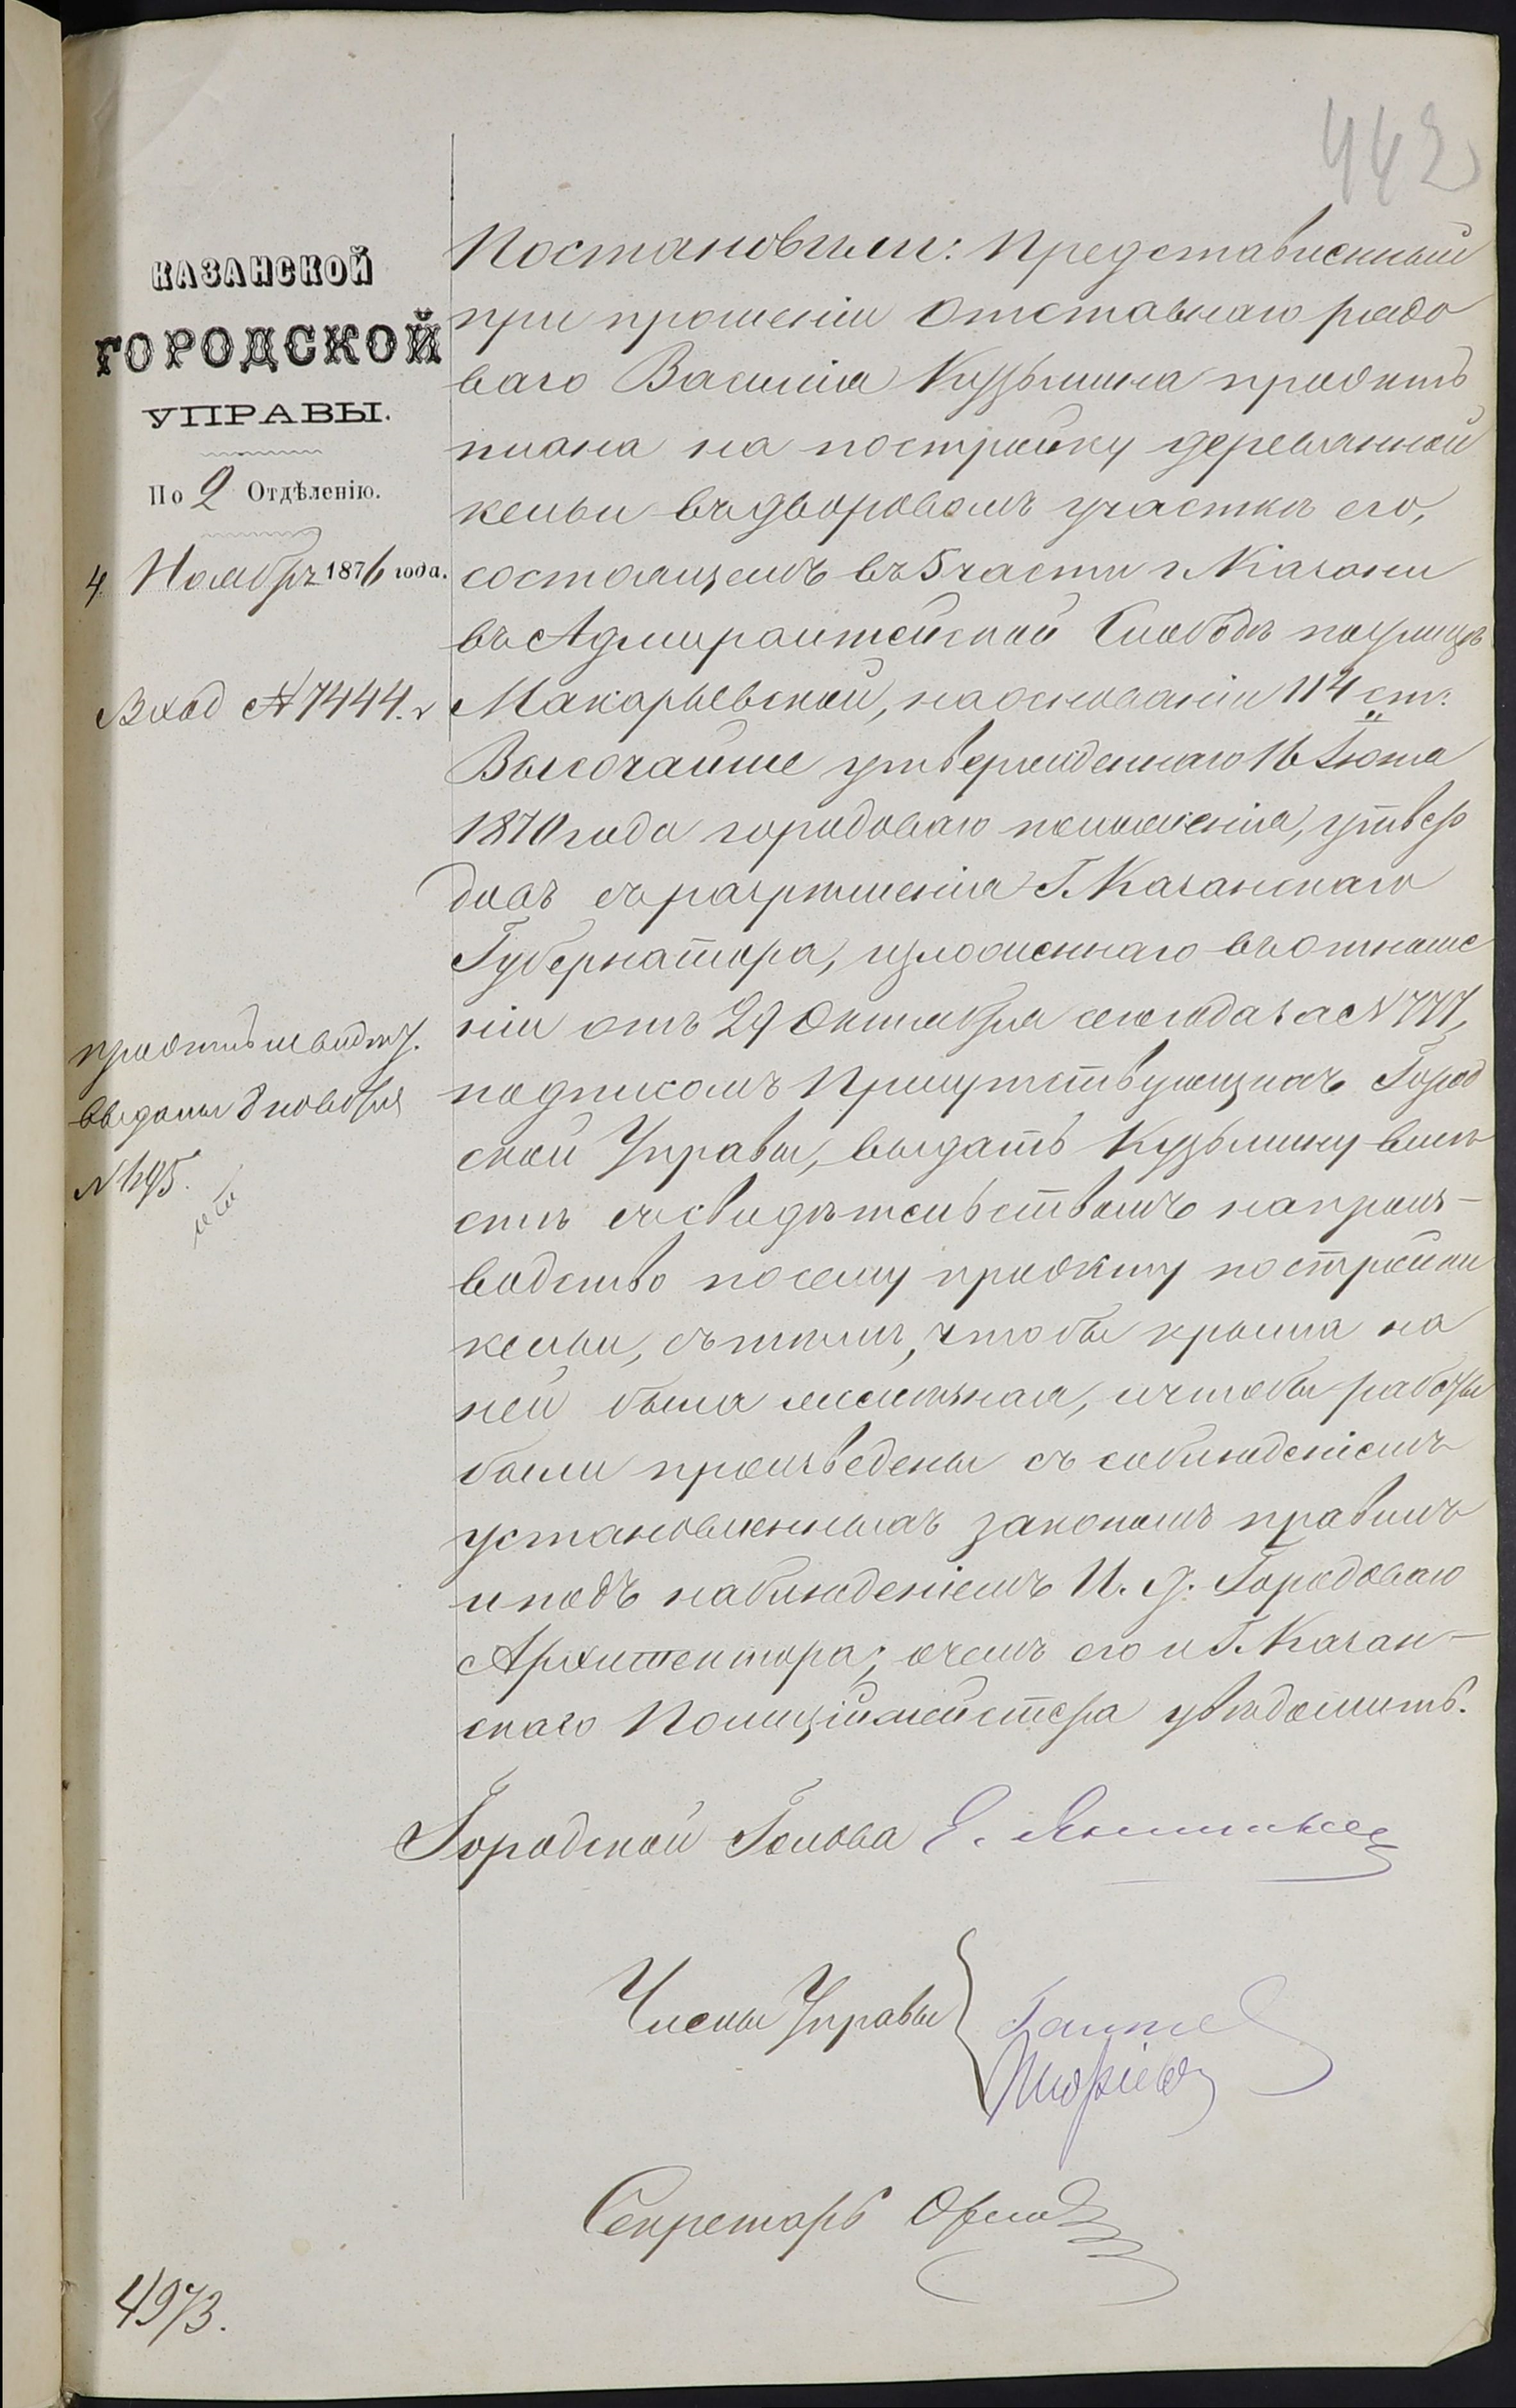 442
КАЗАНСКОЙ
ГОРОДСКОЙ
УПРАВЫ.
По 2 Отдѣленію.
4 Ноября 1876 года.
Вход № 7444.
проэктъ и свидѣт.
выданы 8 ноября
№ 1295.
Постановили: Представленный
при прошеніи Отставнаго рядо
ваго Василія Кузьмина проэктъ
плана на постройку деревянной
кельи въ дворовомъ участкѣ его,
состоящемъ въ 5 части г. Казани
въ Адмиралтейской Слободѣ по улицѣ
Макарьевской, на основаніи 114 ст:
Высочайше утвержденнаго 16 Іюня
1870 года городоваго положенія, утвер
дивъ съ разрѣшенія Г. Казанскаго
Губернатора, изложеннаго въ отноше
ніи отъ 29 Октября сего года за № 777,
подписомъ Присутствующихъ Город
ской Управы, выдать Кузьмину вмѣ
стѣ съ свидѣтельствомъ на произ-
водство по сему проэкту постройки
кельи, съ тѣмъ, чтобы крыша на
ней была желѣзная, и чтобы работы
были произведены съ соблюденіемъ
установленныхъ закономъ правилъ
и подъ наблюденіемъ И. д. Городоваго
Архитектора; о чемъ его и Г. Казан-
скаго Полиціймейстера увѣдомить.
Городской Голова Е.
Члены Управы
Секретарь Орлов
4973.